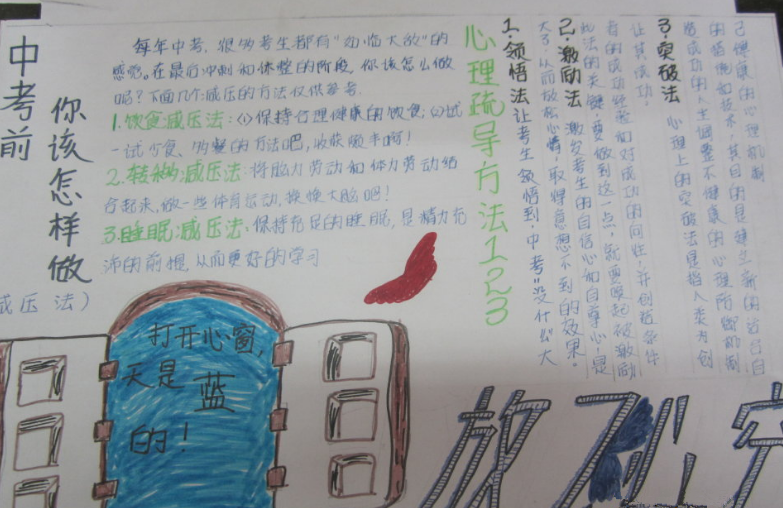 中考前
你该怎样做
减压法）
每年中考，很多考生都有“如临大敌”的
感觉。在最后冲刺和休整的阶段，你该怎么做
呢？下面几个减压的方法仅供参考。
1.饮食减压法：(1)保持合理健康的饮食；(2)试
一试少食、多餐的方法吧，收获颇丰啊！
2.转移减压法：将脑力劳动和体力劳动结
合起来，做一些体育运动，换换大脑吧！
3.睡眠减压法：保持充足的睡眠，是精力充
沛的前提，从而更好的学习
心理疏导方法123
1.领悟法 让考生领悟到“中考”没什么大
大了，从而放松心情，取得意想不到的效果。
2.激励法 激发考生的自信心和自尊心，是
此法的关键，要做到这一点，就要唤起被激励
者的成功经验和对成功的向往，并创造条件
让其成功。
3.突破法 心理上的突破法是指人类为创
造成功的人生调整不健康的心理防御机制
的措施和技术，其目的是建立新的适合自
己健康的心理机制
打开心窗，
天是
蓝
的！
放飞心